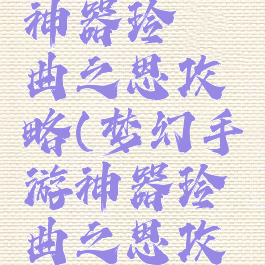 神器玲
曲之思攻
略(梦幻手
游神器玲
曲之思攻